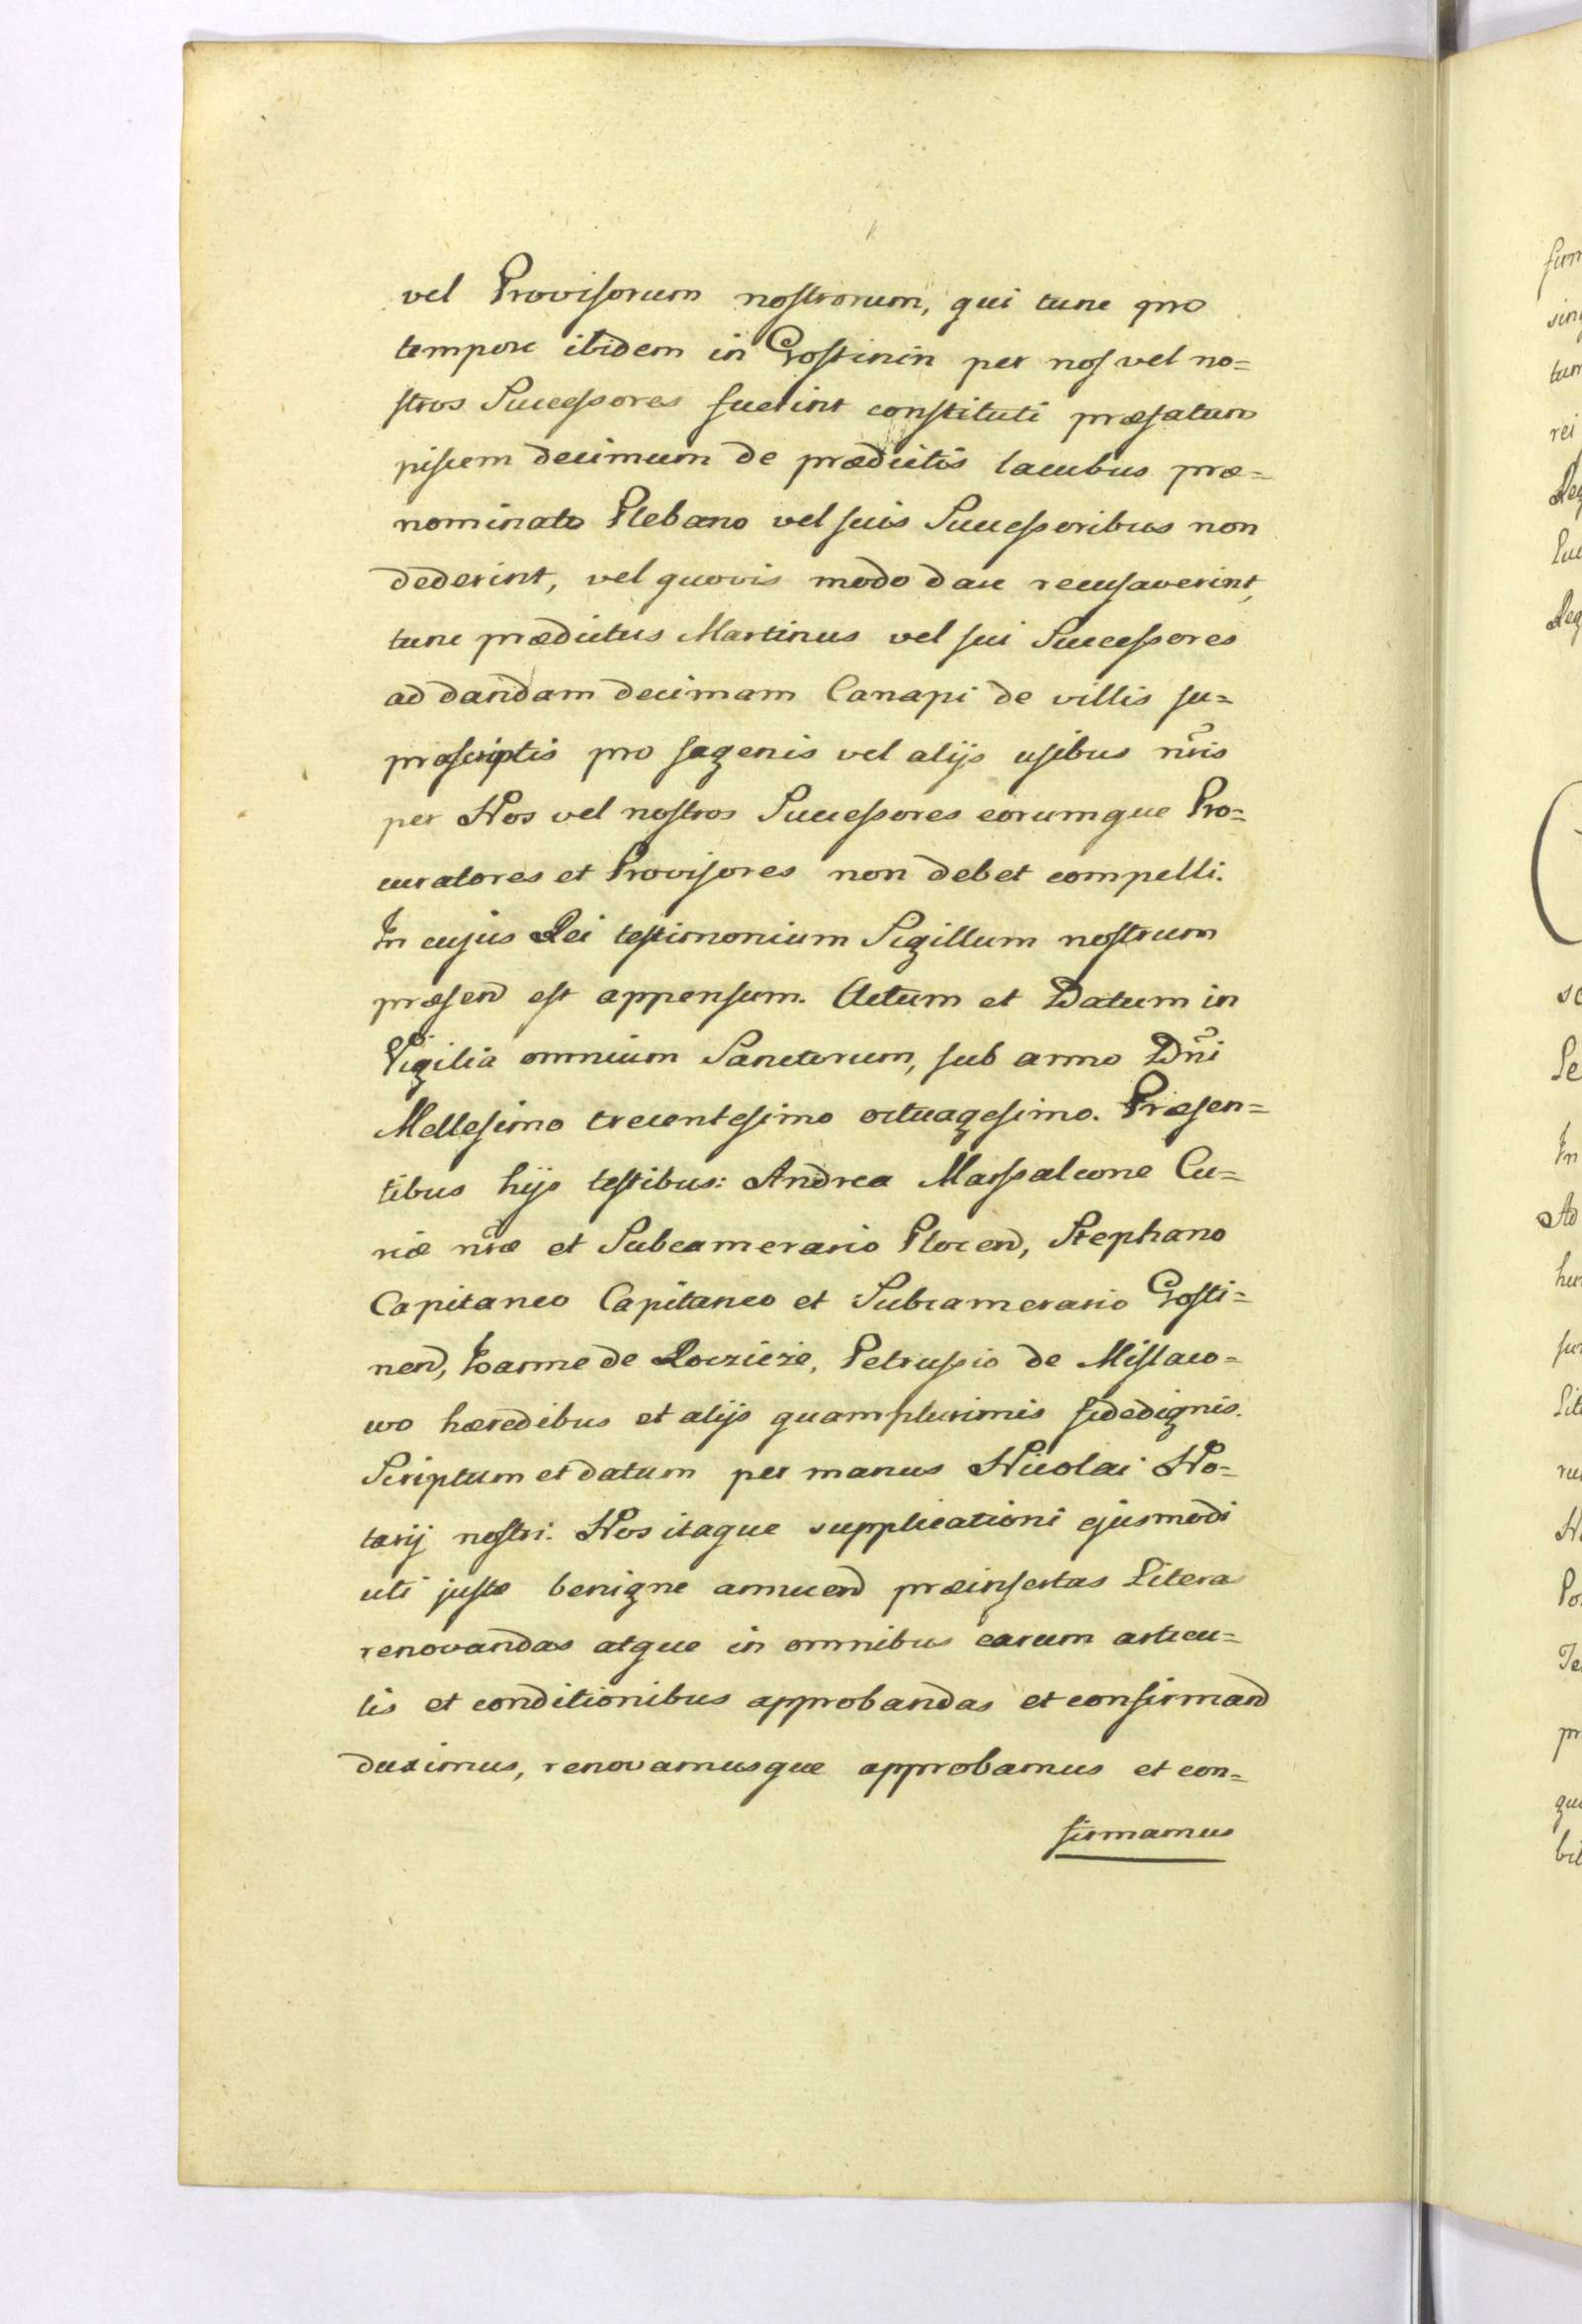 vel Provisorum nostrorum, qui tunc pro
tempore ibidem in Gostinin per nos vel no=
stros Successores fuerint constituti præfatum
piscem decimum de prædictis lacubus præ=
nominato Plebano vel suis Successoribus non
dederint, vel quovis modo dare recusaverint,
tunc prædictus Martinus vel sui Successores
ad dandam decimam Canapi de villis su=
prascriptis pro sagenis vel alijs usibus nr̃is
per Nos vel nostros Successores eorumque Pro=
curatores et Provisores non debet compelli.
In cujus Rei testimonium Sigillum nostrum
præsend est appensum. Actum et Datum in
Vigilia omnium Sanctorum, sub anno Dñi
Mellesimo trecentesimo octuagesimo. Præsen=
tibus hijs testibus: Andrea Marssalcone Cu=
riæ nr̃æ et Subcamerario Plocend, Stephano
Capitaneo Capitaneo et Subcamerario Gosti=
nend, Joanne de Petrussio de
wo hæredibus et alijs quamplurimis fidedignis.
Scriptum et datum per manus Nicolai No=
tarij nostri. Nos itaque supplicationi ejusmodi
uti justæ benigne annuend præinsertas Litera
renovandas atque in omnibus earum articu=
lis et conditionibus approbandas et confirmand
duximus, renovamusque approbamus et con=
firmamus